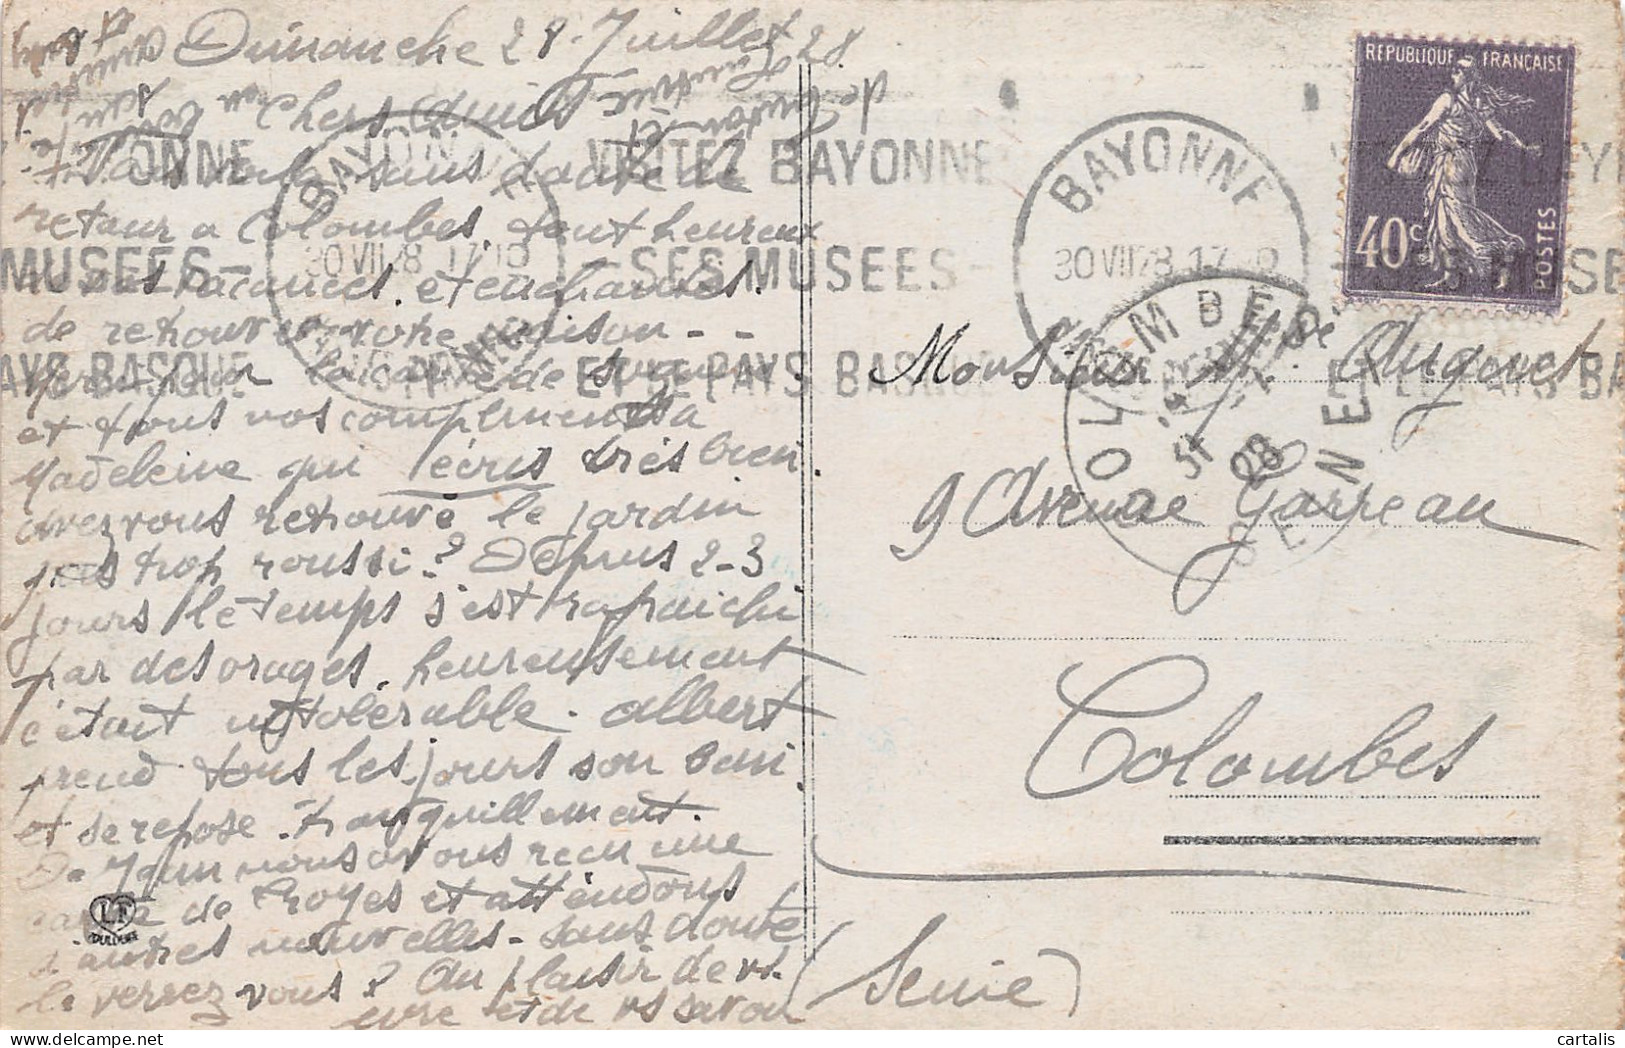 Dimanche 28 Juillet 28
Chers Amis
Vous voila sans doute de
retour a Colombes, tout heureux
de vos vacances et enchantés
de retrouver votre maison - -
Merci pour la carte de
et tous vos compliments a
Madeleine qui écris très bien.
avez vous retrouvé le jardin
pas trop roussi? Depuis 2-3
jours le temps s'est rafraichi
par des orages, heureusement
c'était intolérable. Albert
prend tous les jours son bain
et se repose tranquillement.
De Jean nous avons recu une
carte de Troyes et attendons
d'autres nouvelles - sans doute
le verrez vous? Au plaisir de vs
lire et de vs savoir
REPUBLIQUE FRANÇAISE
40c
POSTES
BAYONNE
30 VII 28 17
VISITEZ BAYONNE
SES MUSEES
ET LE PAYS BASQUE
COLOMBES
SEINE
31 -7 28
Monsieur & Me Augenet
9 Avenue Garreau
Colombes
(Seine)
LF
TOULOUSE
cartalis